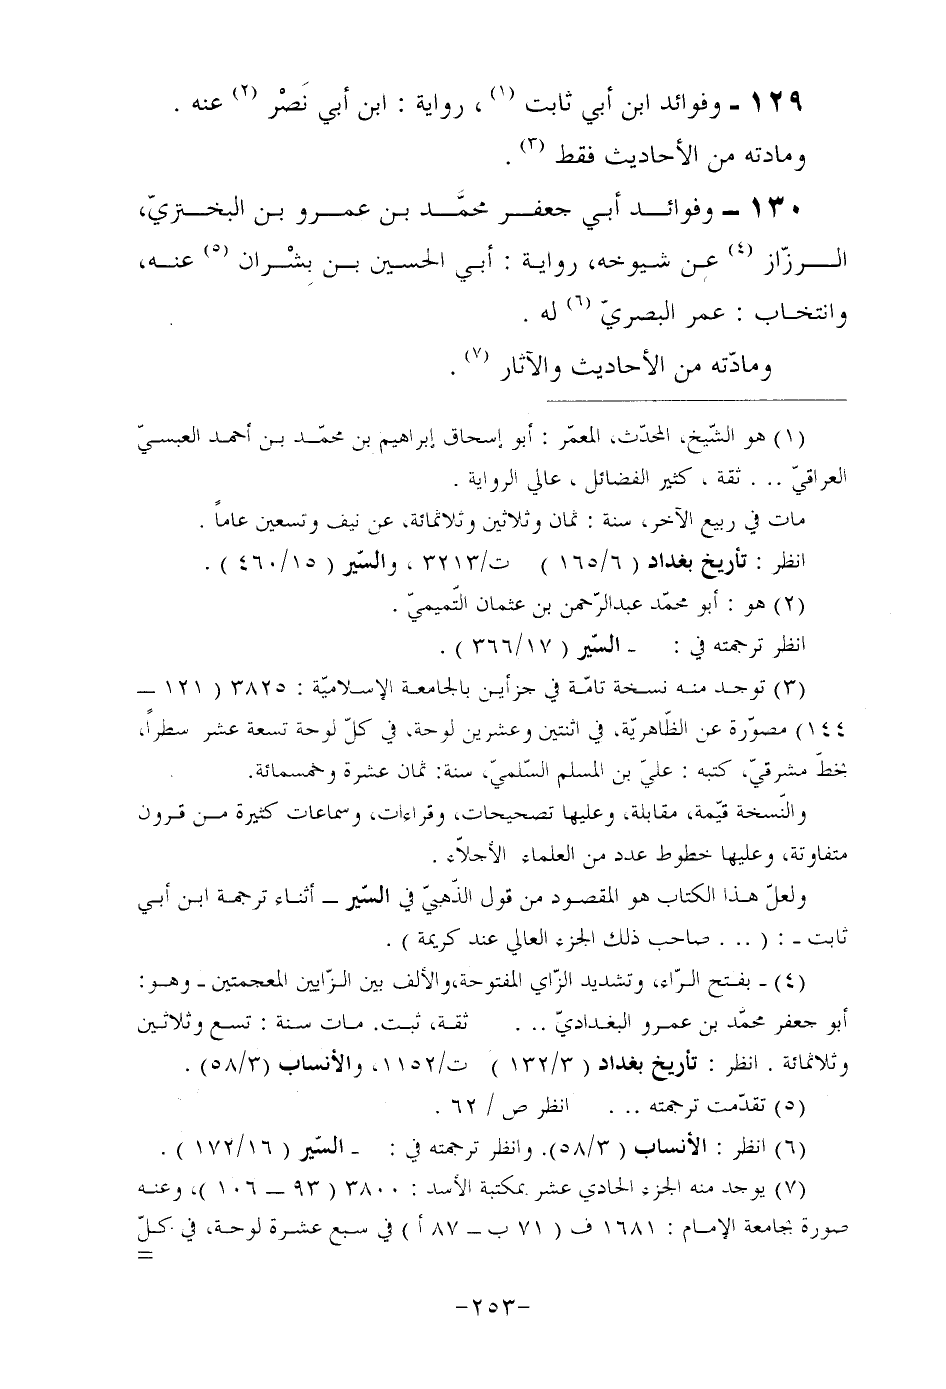 ١٢٩ - وفوائد ابن أبي ثابت (١) ، رواية : ابن أبي نَصْر (٢) عنه .
ومادته من الأحاديث فقط (٣) .
١٣٠ - وفوائد أبي جعفر محمَّد بن عمرو بن البختريّ،
الرزّاز (٤) عن شيوخه، رواية : أبي الحسين بن بِشْران (٥) عنه،
وانتخاب : عمر البصريّ (٦) له .
ومادّته من الأحاديث والآثار (٧) .
(١) هو الشّيخ، المحدّث، المعمّر : أبو إسحاق إبراهيم بن محمّد بن أحمد العبسيّ
العراقيّ .. . ثقة ، كثير الفضائل ، عالي الرواية .
مات في ربيع الآخر، سنة : ثمان وثلاثين وثلاثمائة، عن نيف وتسعين عاماً .
انظر : تأريخ بغداد ( ٦/١٦٥ ) ت/٣٢١٣ ، والسّير ( ١٥/٤٦٠ ) .
(٢) هو : أبو محمّد عبدالرّحمن بن عثمان التّميميّ .
انظر ترجمته في : - السّير ( ١٧/٣٦٦ ) .
(٣) توجد منه نسخة تامّة في جزأين بالجامعة الإسلاميّة : ٣٨٢٥ ( ١٢١ –
١٤٤) مصوّرة عن الظاهريّة، في اثنتين وعشرين لوحة، في كلّ لوحة تسعة عشر سطراً،
بخطّ مشرقيّ، كتبه : عليّ بن المسلم السّلميّ، سنة: ثمان عشرة وخمسمائة.
والنّسخة قيّمة، مقابلة، وعليها تصحيحات، وقراءات، وسماعات كثيرة من قرون
متفاوتة، وعليها خطوط عدد من العلماء الأجلاّء .
ولعلّ هذا الكتاب هو المقصود من قول الذّهبيّ في السّير – أثناء ترجمة ابن أبي
ثابت - : ( .. . صاحب ذلك الجزء العالي عند كريمة ) .
(٤) - بفتح الرّاء، وتشديد الزّاي المفتوحة،والألف بين الزّايين المعجمتين - وهو:
أبو جعفر محمّد بن عمرو البغداديّ .. . ثقة، ثبت. مات سنة : تسع وثلاثين
وثلاثمائة . انظر : تأريخ بغداد ( ٣/١٣٢ ) ت/١١٥٢، والأنساب (٣/٥٨) .
(٥) تقدّمت ترجمته .. . انظر ص / ٦٢ .
(٦) انظر : الأنساب ( ٣/٥٨). وانظر ترجمته في : - السّير ( ١٦/١٧٢ ) .
(٧) يوجد منه الجزء الحادي عشر بمكتبة الأسد : ٣٨٠٠ ( ٩٣ – ١٠٦ )، وعنه
صورة بجامعة الإمام : ١٦٨١ ف ( ٧١ ب – ٨٧ أ ) في سبع عشرة لوحة، في كلّ
=
-٢٥٣-